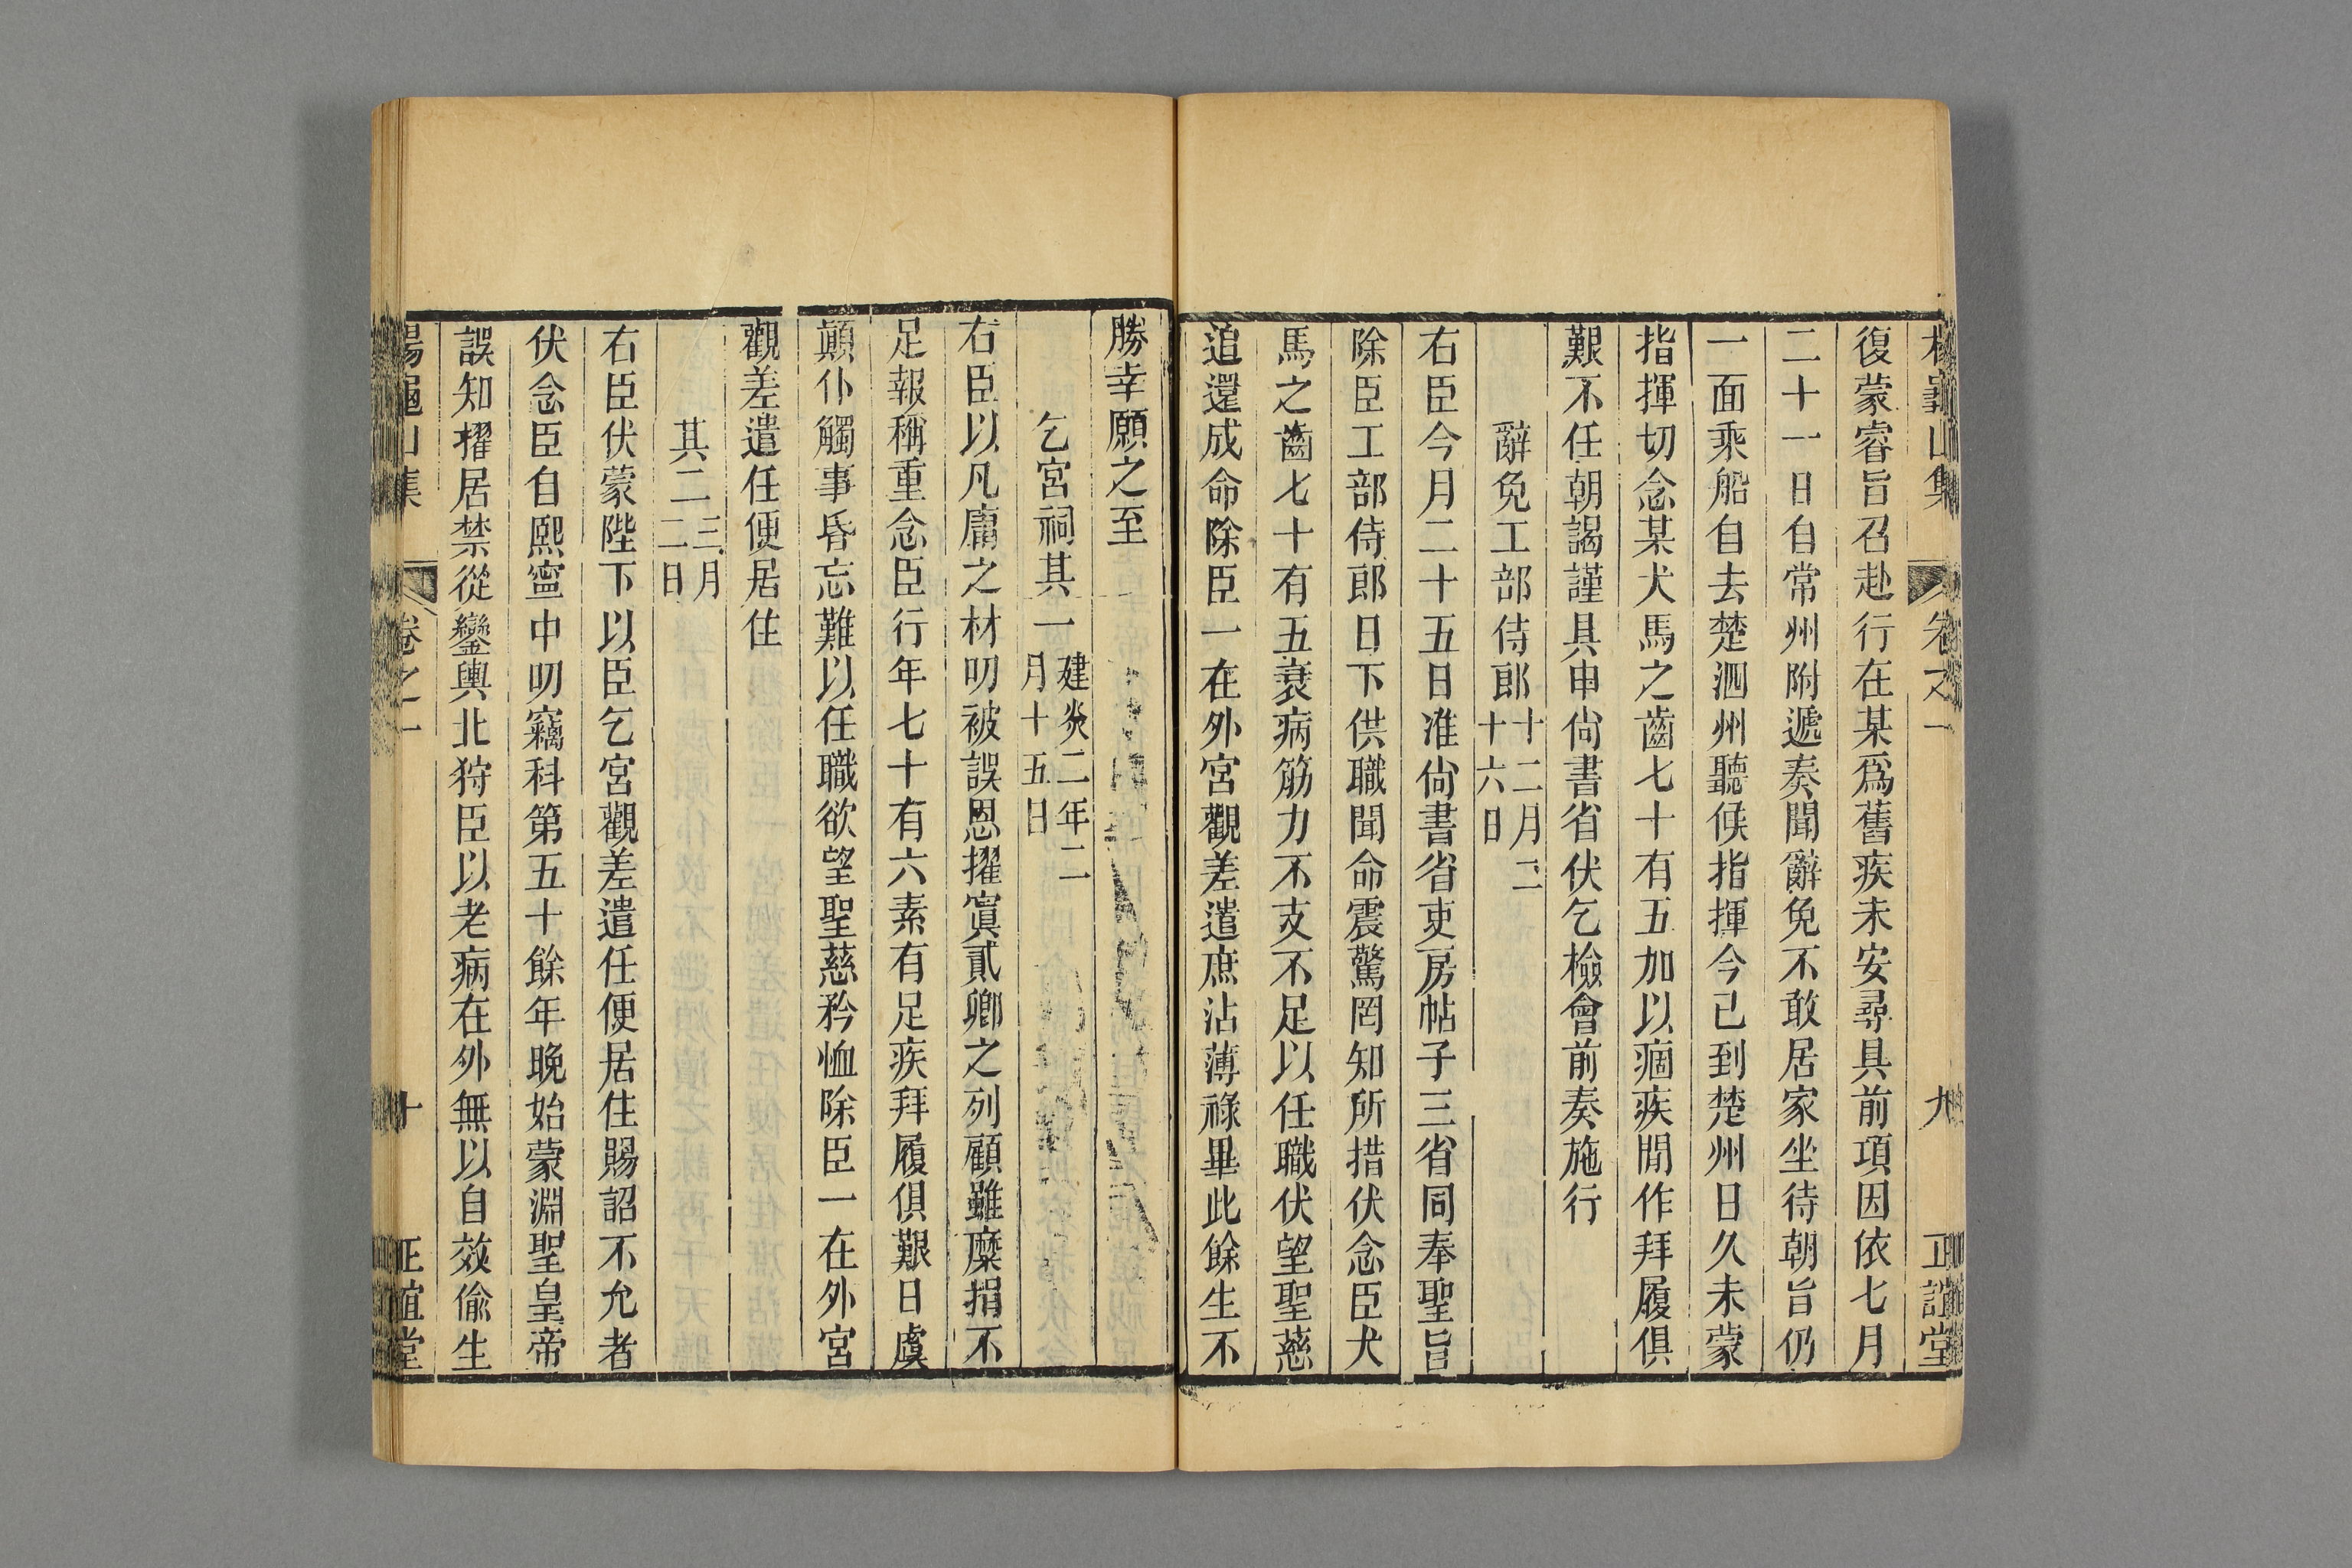 楊龜山集 卷之一 九 正誼堂
復蒙睿旨召赴行在某爲舊疾未安尋具前項因依七月
二十一日自常州附遞奏聞辭免不敢居家坐待朝旨仍
一面乘船自去楚泗州聽候指揮今已到楚州日久未蒙
指揮切念某犬馬之齒七十有五加以痼疾間作拜履俱
艱不任朝謁謹具申尙書省伏乞檢會前奏施行
辭免工部侍郎十二月二
十六日
右臣今月二十五日准尙書省吏房帖子三省同奉聖旨
除臣工部侍郎日下供職聞命震驚罔知所措伏念臣犬
馬之齒七十有五衰病筋力不支不足以任職伏望聖慈
追還成命除臣一在外宮觀差遣庶沾薄祿畢此餘生不
勝幸願之至
乞宮祠其一建炎二年二
月十五日
右臣以凡庸之材叨被誤恩擢寘貳卿之列顧雖糜捐不
足報稱重念臣行年七十有六素有足疾拜履俱艱日虞
顚仆觸事昏忘難以任職欲望聖慈矜恤除臣一在外宮
觀差遣任便居住
其二三月
二日
右臣伏蒙陛下以臣乞宮觀差遣任便居住賜詔不允者
伏念臣自熙寧中叨竊科第五十餘年晚始蒙淵聖皇帝
誤知擢居禁從鑾輿北狩臣以老病在外無以自效偷生
楊龜山集 卷之一 十 正誼堂